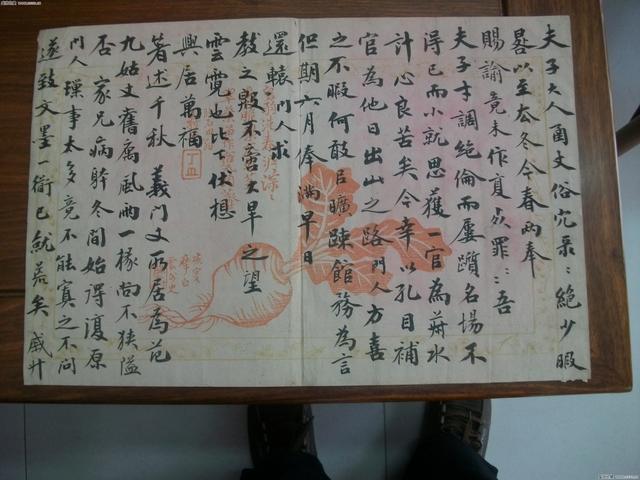 夫子大人函丈俗冗柔⺀絶少暇
晷以至去冬今春兩奉
賜諭竟未作復死罪⺀⺀吾
夫子才調絶倫而屢躓名場不
得已而小就思獲一官為菽水
計心良苦矣今幸以孔目補
官為他日出山之路門人方喜
之不暇何敢以曠疎館務為言
但期六月俸滿早日
還轅門人求
教之殷不啻大旱之望
雲霓也比下伏想
興居萬福
著述千秋義門丈所居為范
九姑丈舊廬風雨一椽尚不狹隘
否家兄病躰冬間始得復原
門人瑣事太多竟不能寘之不問
遂致文墨一銜已就荒矣歲廾